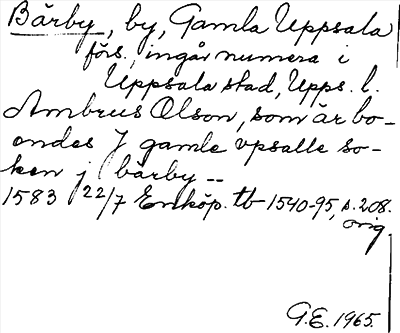 Bärby, by, Gamla Uppsala
förs., ingår numera i
Uppsala stad, Upps. l.
Ambrus Olson, som är bo-
ondes J gamle vpsalle so-
ken j bärby --
1583 22/7 Enköp. tb 1540-95, s. 208.
orig.
G.E. 1965.